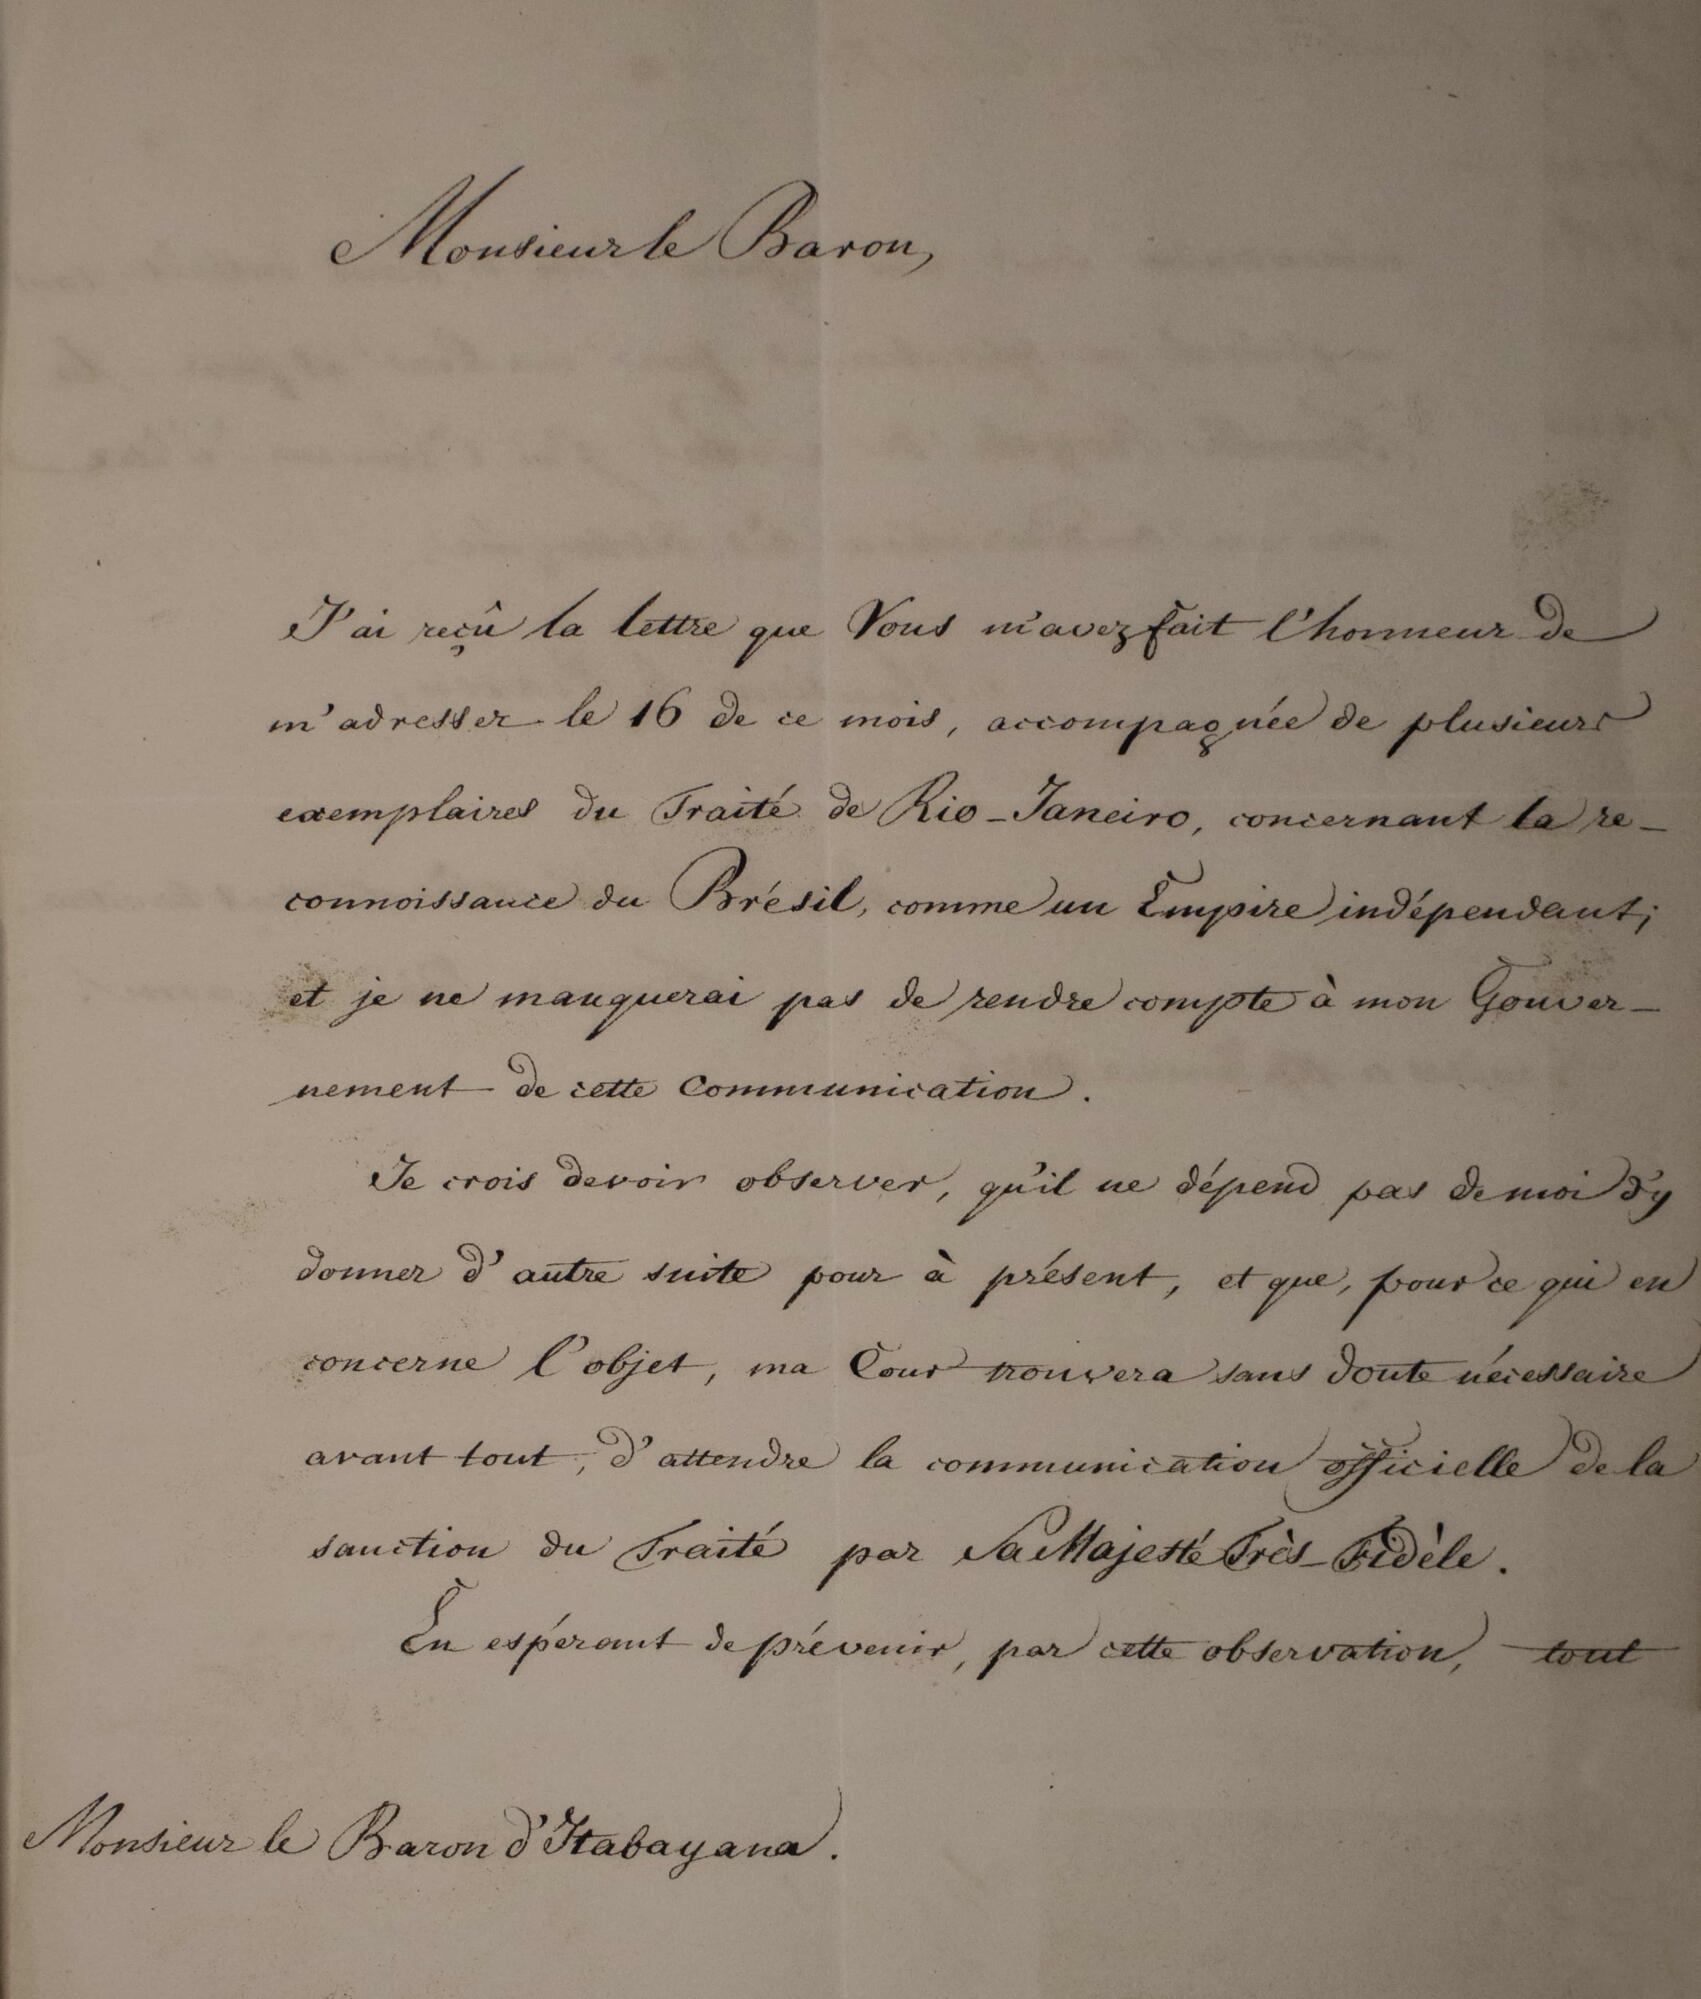 Monsieur le Baron,
J'ai reçû la lettre que Vous m'avez fait l'honneur de
m'adresser le 16 de ce mois, accompagnée de plusieurs
exemplaires du Traité de Rio-Janeiro, concernant la re-
connoissance du Brésil, comme un Empire indépendant;
et je ne manquerai pas de rendre compte à mon Gouver-
nement de cette Communication.
Je crois devoir observer, qu'il ne dépend pas de moi d'y
donner d'autre suite pour à présent, et que, pour ce qui en
concerne l'objet, ma Cour trouvera sans doute nécessaire
avant tout, d'attendre la communication officielle de la
sanction du Traité par Sa Majesté Très-Fidèle.
En espérant de prévenir, par cette observation, tout
Monsieur le Baron d'Itabayana.